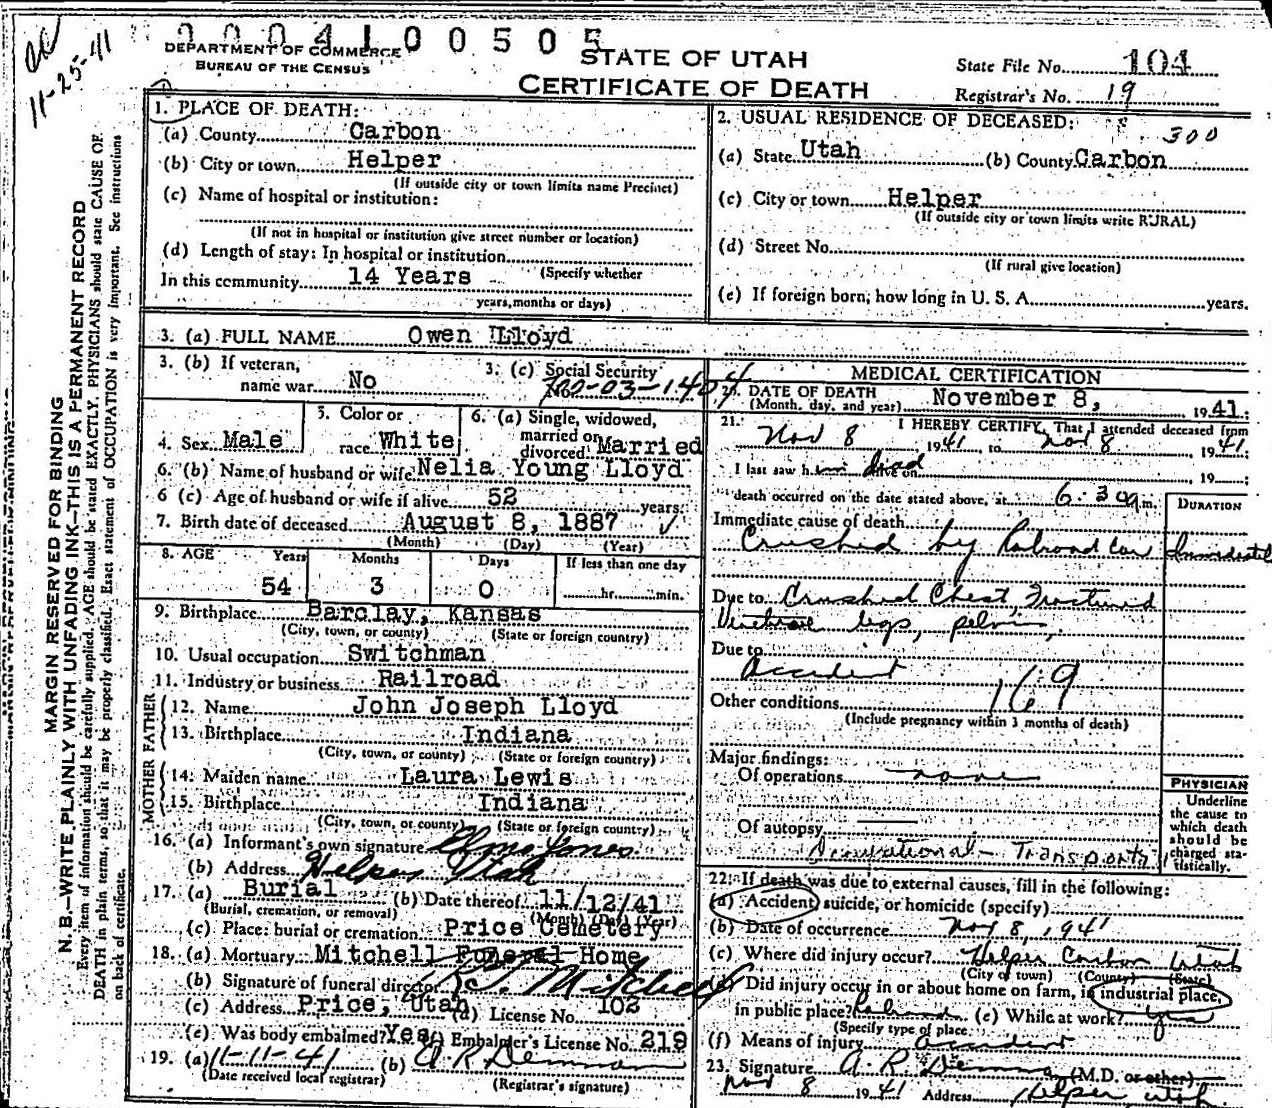 11-25-41
0004100505
DEPARTMENT OF COMMERCE
BUREAU OF THE CENSUS
STATE OF UTAH
CERTIFICATE OF DEATH
State File No. 104
Registrar's No. 19
MARGIN RESERVED FOR BINDING
N. B.—WRITE PLAINLY WITH UNFADING INK—THIS IS A PERMANENT RECORD
Every item of information should be carefully supplied. AGE should be stated EXACTLY. PHYSICIANS should state CAUSE OF
DEATH in plain terms, so that it may be properly classified. Exact statement of OCCUPATION is very important. See instructions
on back of certificate.
1. PLACE OF DEATH:
(a) County Carbon
(b) City or town Helper
(If outside city or town limits name Precinct)
(c) Name of hospital or institution:
(If not in hospital or institution give street number or location)
(d) Length of stay: In hospital or institution
(Specify whether
In this community 14 Years
years, months or days)
2. USUAL RESIDENCE OF DECEASED:
300
(a) State Utah (b) County Carbon
(c) City or town Helper
(If outside city or town limits write RURAL)
(d) Street No.
(If rural give location)
(e) If foreign born, how long in U. S. A. years.
3. (a) FULL NAME Owen Lloyd
3. (b) If veteran,
name war No
3. (c) Social Security
No. 700-03-1404
4. Sex Male
5. Color or
race White
6. (a) Single, widowed,
married or
divorced Married
6. (b) Name of husband or wife Nelia Young Lloyd
6 (c) Age of husband or wife if alive 52 years.
7. Birth date of deceased August 8, 1887 ✓
(Month) (Day) (Year)
8. AGE Years Months Days If less than one day
54 3 0 hr. min.
9. Birthplace Barclay, Kansas
(City, town, or county) (State or foreign country)
10. Usual occupation Switchman
11. Industry or business Railroad
FATHER
12. Name John Joseph Lloyd
13. Birthplace Indiana
(City, town, or county) (State or foreign country)
MOTHER
14. Maiden name Laura Lewis
15. Birthplace Indiana
(City, town, or county) (State or foreign country)
16. (a) Informant's own signature Elmo Jones
(b) Address Helper Utah
17. (a) Burial (b) Date thereof 11/12/41
(Burial, cremation, or removal) (Month) (Day) (Year)
(c) Place: burial or cremation Price Cemetery
18. (a) Mortuary Mitchell Funeral Home
(b) Signature of funeral director Mitchell
(c) Address Price, Utah (d) License No. 102
(e) Was body embalmed? Yes (f) Embalmer's License No. 219
19. (a) 11-11-41 (b) A R Demman
(Date received local registrar) (Registrar's signature)
MEDICAL CERTIFICATION
20. DATE OF DEATH
(Month, day, and year) November 8, 1941.
21. I HEREBY CERTIFY, That I attended deceased from
Nov 8 1941 to Nov 8 1941
I last saw him dead alive on 19
death occurred on the date stated above, at 6:30 a m.
DURATION
Immediate cause of death
Crushed by Railroad Car Immediate
Due to Crushed Chest, Fractured
legs, pelvis,
Due to
Accident
169
Other conditions
(Include pregnancy within 3 months of death)
Major findings:
Of operations none
Of autopsy
Occupational - Transporta
PHYSICIAN
Underline
the cause to
which death
should be
charged sta-
tistically.
22. If death was due to external causes, fill in the following:
(a) Accident, suicide, or homicide (specify)
(b) Date of occurrence Nov 8, 1941
(c) Where did injury occur? Helper Carbon Utah
(City or town) (County) (State)
Did injury occur in or about home on farm, in industrial place,
in public place? Railroad (e) While at work? yes
(Specify type of place
(f) Means of injury accident
23. Signature A. R. Demman (M.D. or other)
Nov 8 1941 Address Helper Utah